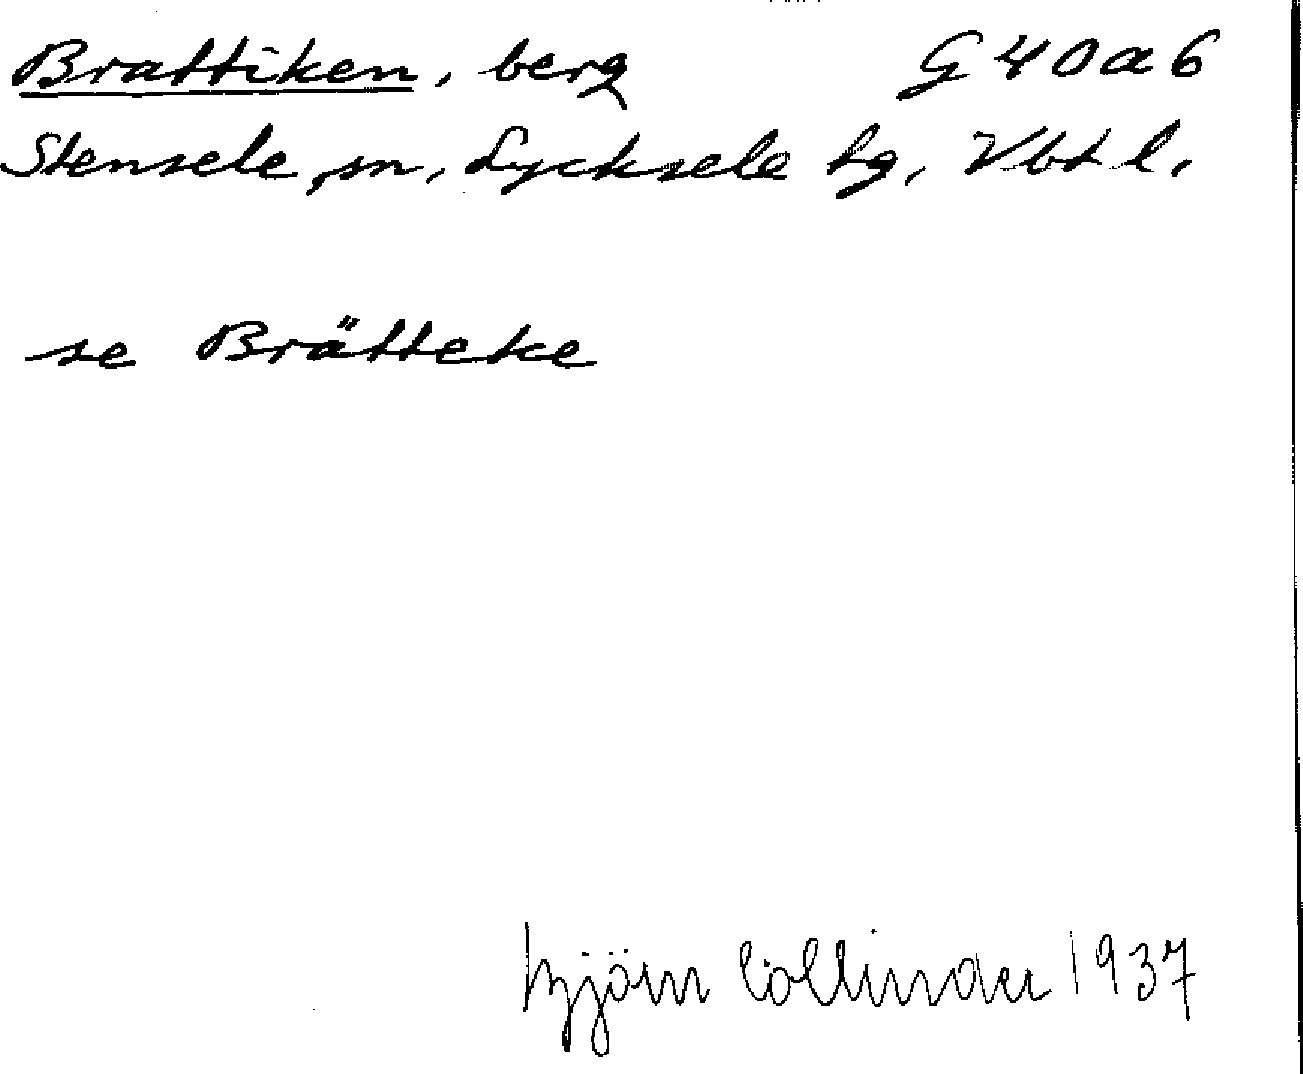 Brattiken, berg G 40 a 6
Stensele sn, Lycksele lg, Vbtl.
se Brätteke
Björn Collinder 1937